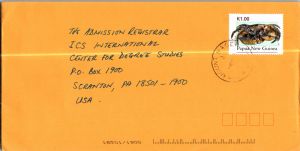 K1.00
Papua New Guinea
THE ADMISSION REGISTRAR
ICS INTERNATIONAL
CENTER FOR DEGREE STUDIES
P.O. BOX 1900
SCRANTON, PA 18501-1900
USA.